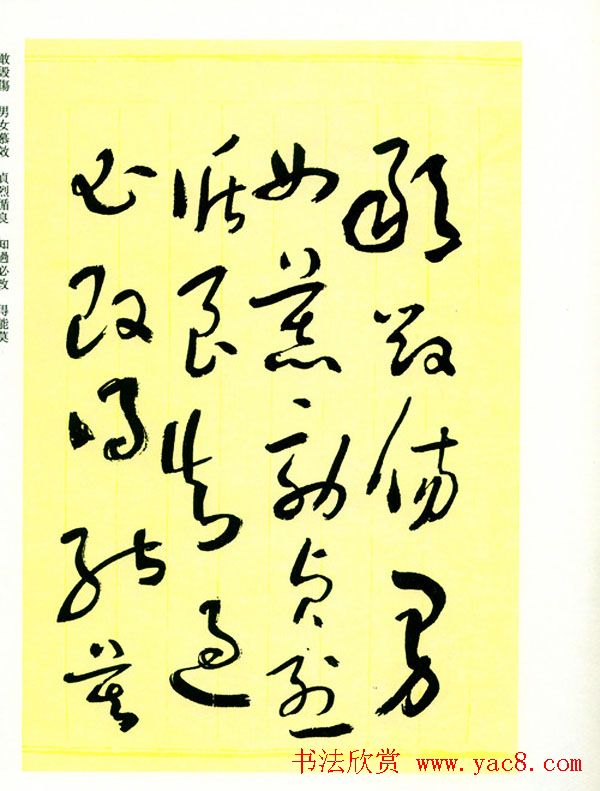 敢毀傷男
女慕効貞烈
循良知過
必改得能莫
敢毀傷 男女慕效 貞烈循良 知過必改 得能莫
书法欣赏 www.yac8.com